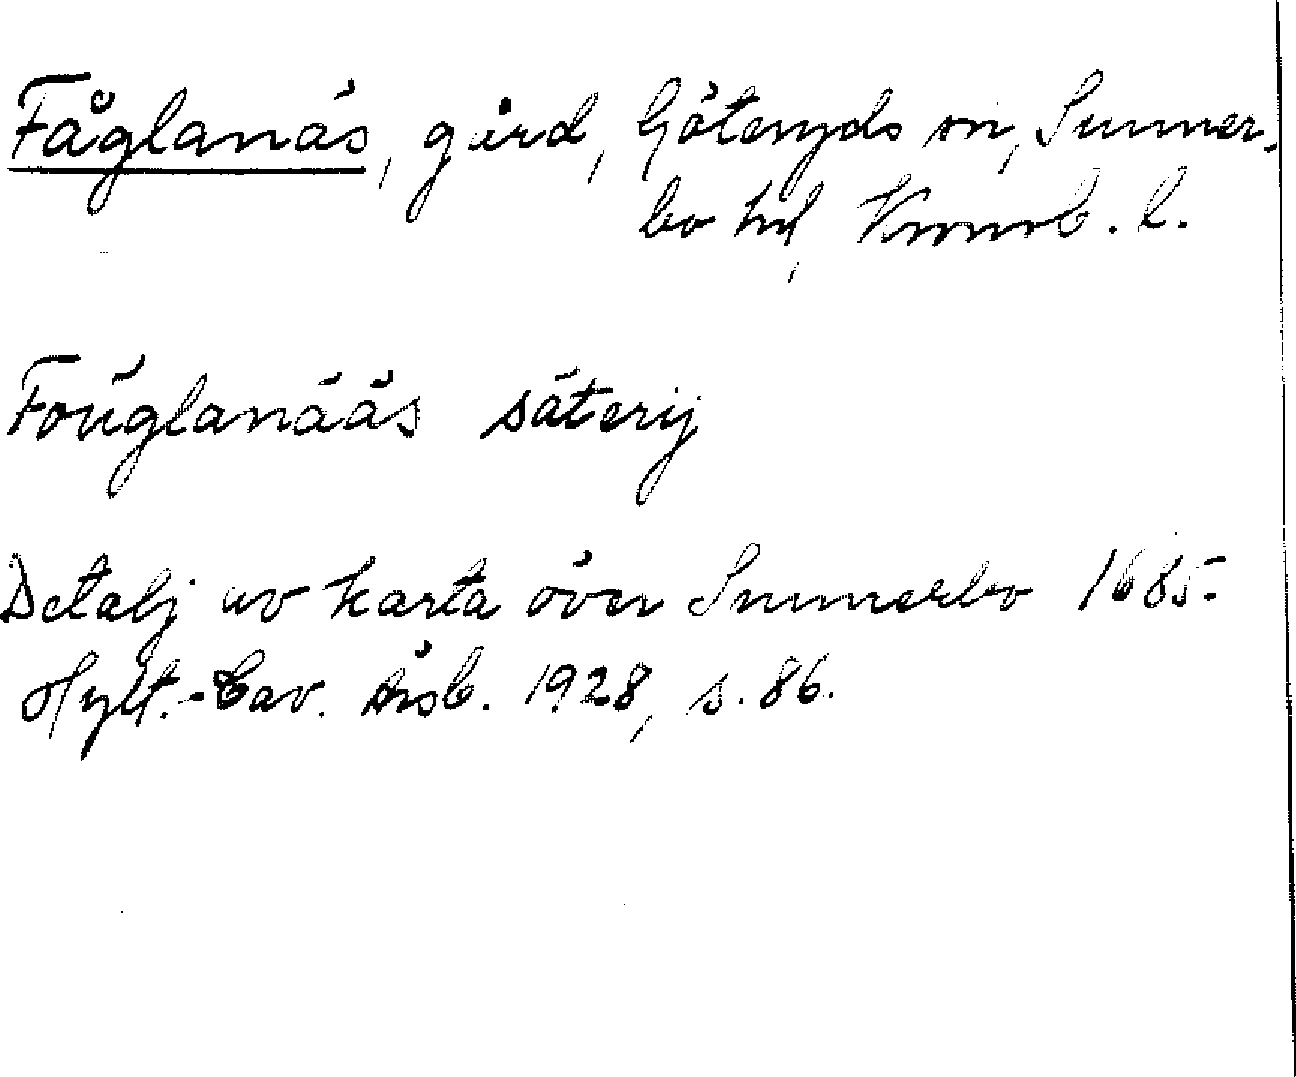 Fåglanäs, gård, Göteryds sn, Sunner-
bo hd, Kronob. l.
Foŭglanääs säterij
Detalj av karta över Sunnerbo 1685.
Hylt.-Cav. Årsb. 1928, s. 86.